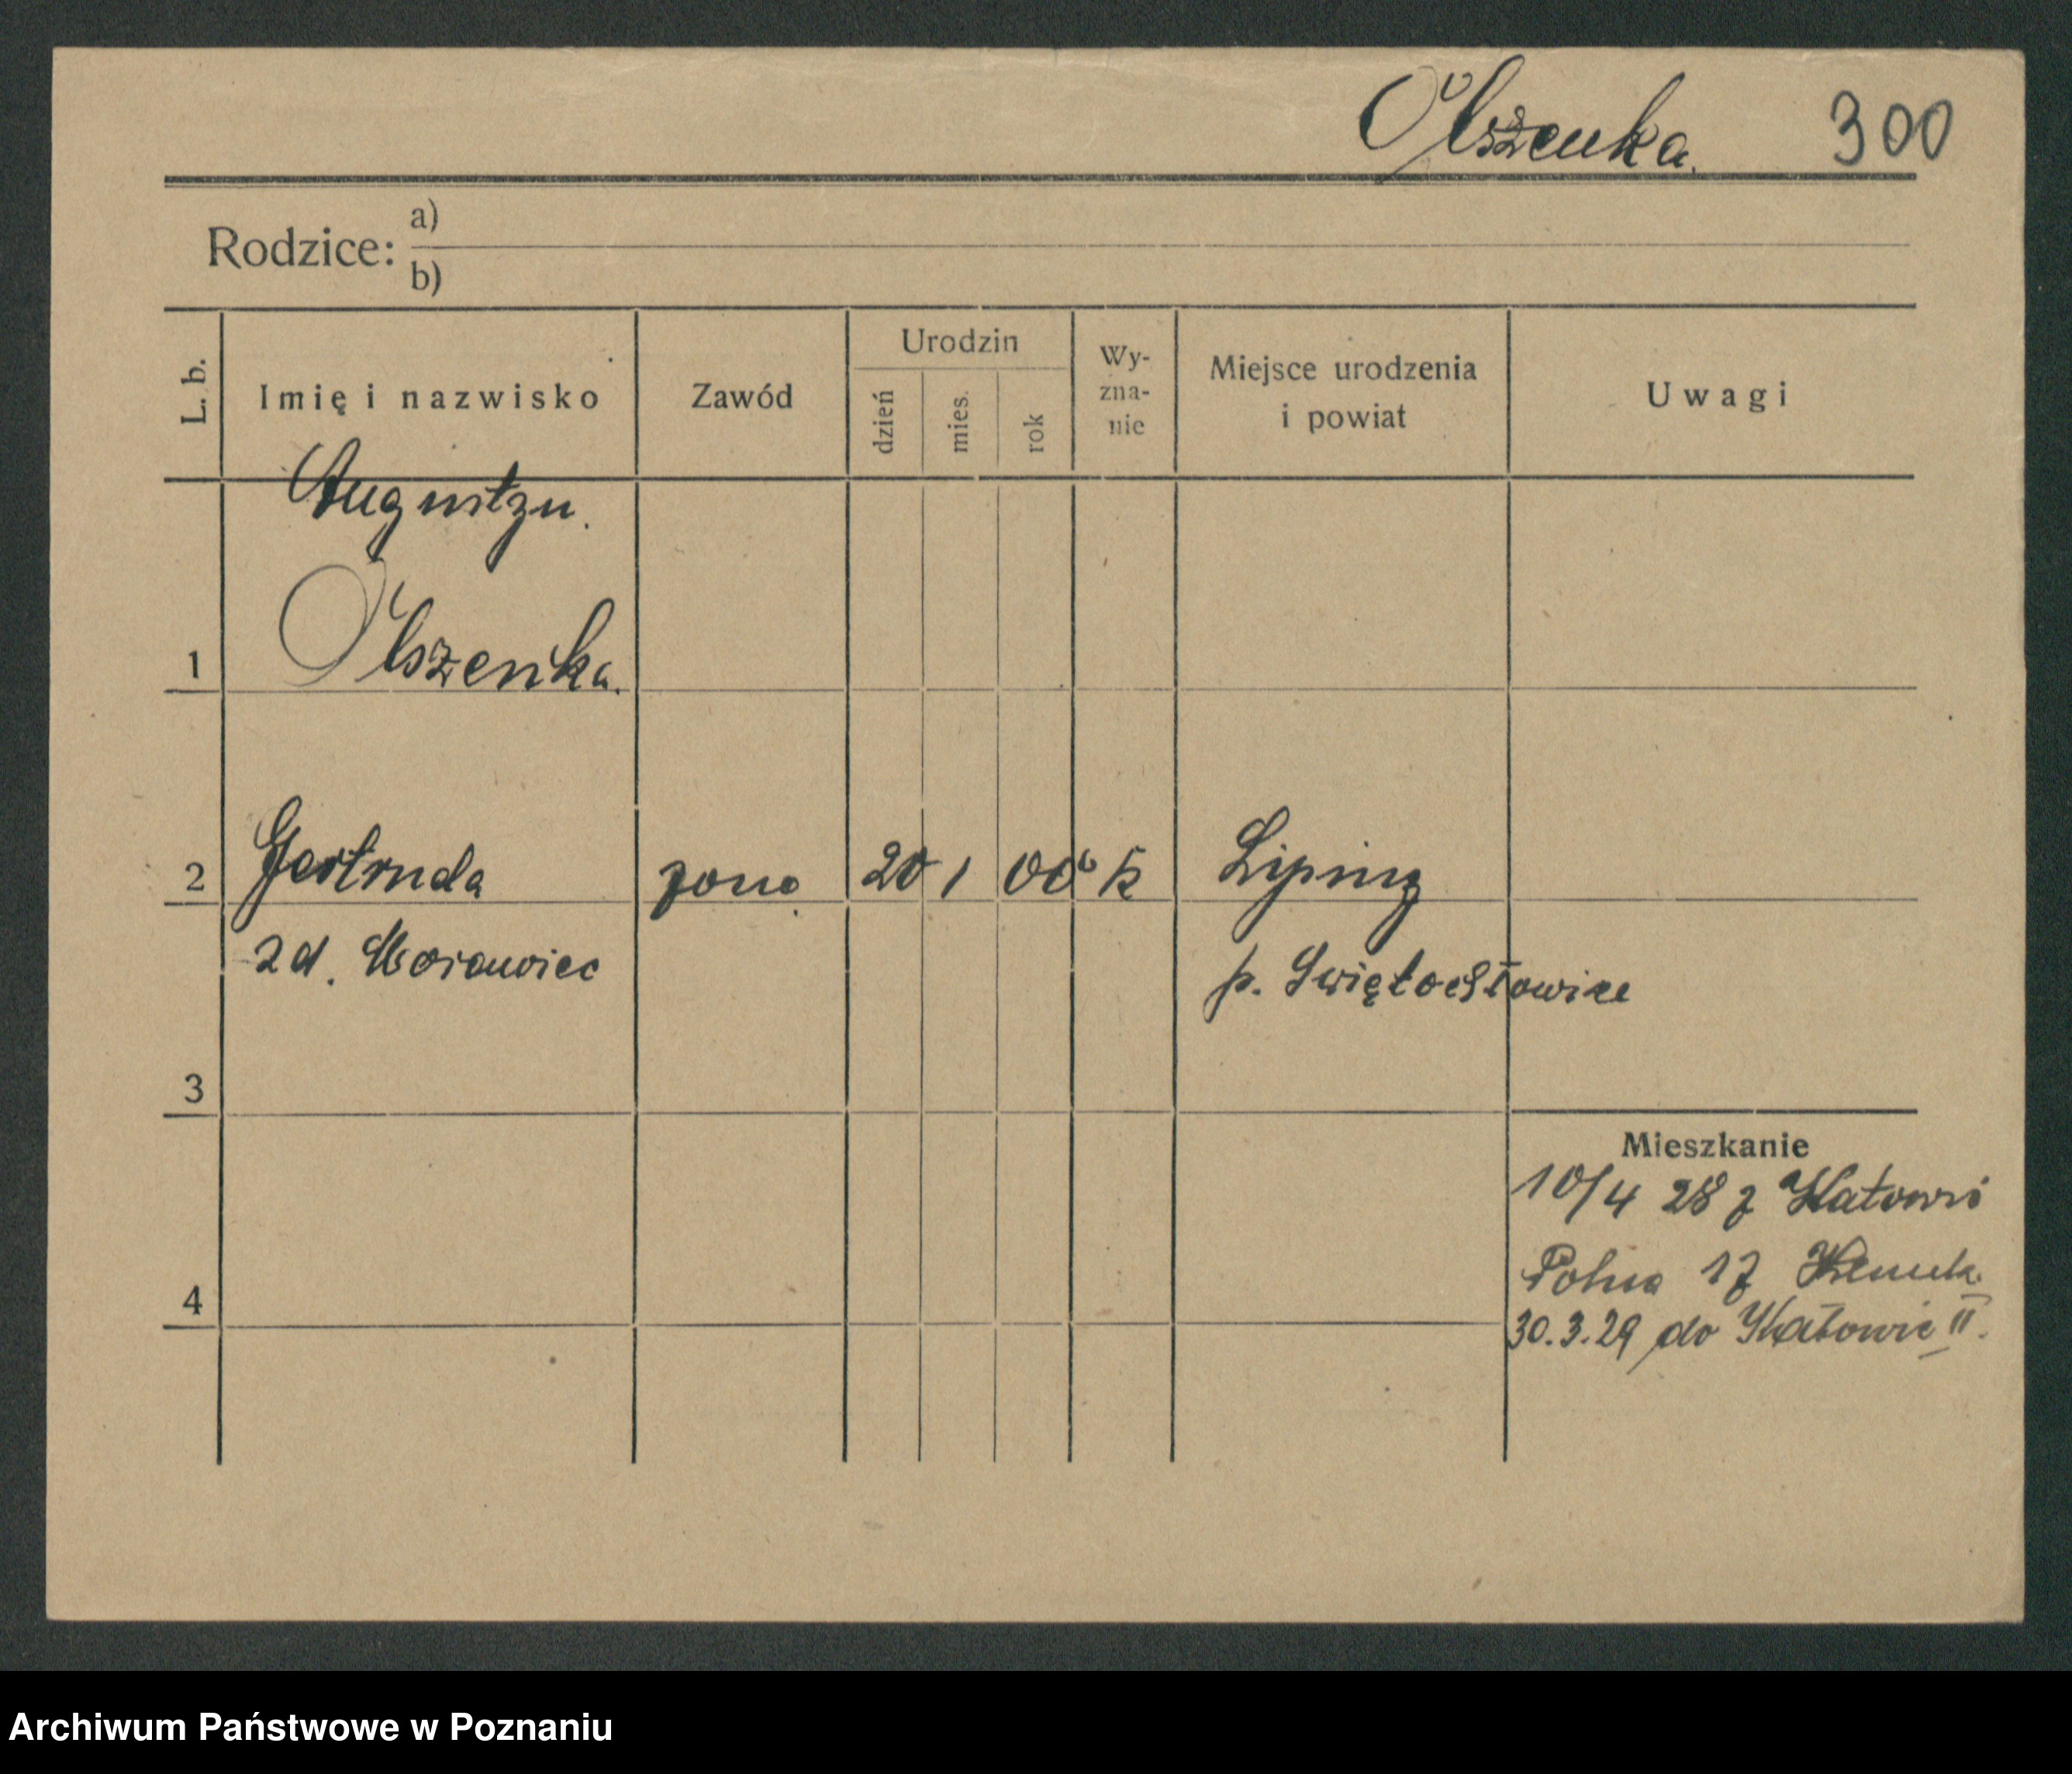 Olszenka. 300
Rodzice: a)
b)
L. b. Imię i nazwisko Zawód Urodzin dzień mies. rok Wy-zna-nie Miejsce urodzenia i powiat Uwagi
Augustyn.
1 Olszenka.
2 Gertruda żona 20 1 00 k Lipiny
zd. Morawiec p. Świętochłowice
3
Mieszkanie
10/4 28 z Katowic
Polna 17
4
30.3.29 do Katowic II.
Archiwum Państwowe w Poznaniu